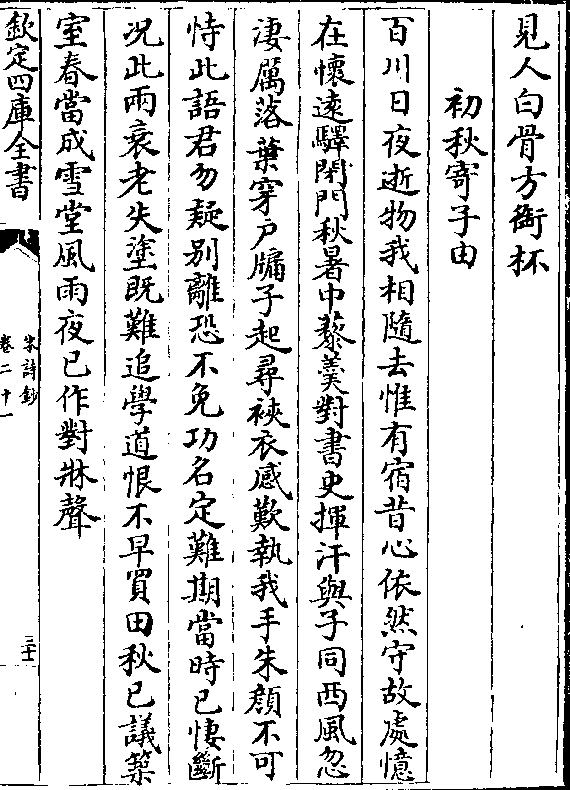 見人白骨方銜杯
初秋寄子由
百川日夜逝物我相隨去惟有宿昔心依然守故處憶
在懷遠驛閉門秋暑中藜羹對書史揮汗與子同西風忽
淒厲落葉穿戶牖子起尋裌衣感歎執我手朱顔不可
恃此語君勿疑别離恐不免功名定難期當時已悽斷
况此兩衰老失塗既難追學道恨不早買田秋已議築
室春當成雪堂風雨夜已作對牀聲
欽定四庫全書
宋詩鈔
卷二十一
三十二